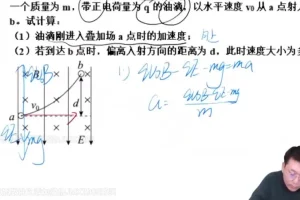 一个质量为 m，带正电荷量为 q 的油滴，以水平速度 v₀ 从 a 点射入
b。试计算：
（1）油滴刚进入叠加场 a 点时的加速度；
（2）若到达 b 点时，偏离入射方向的距离为 d，此时速度大小为多
1) qv₀B - qE - mg = ma
a = qv₀B-qE-mg / m
qv₀B
B
b
v₀
d
a
qE
mg
E